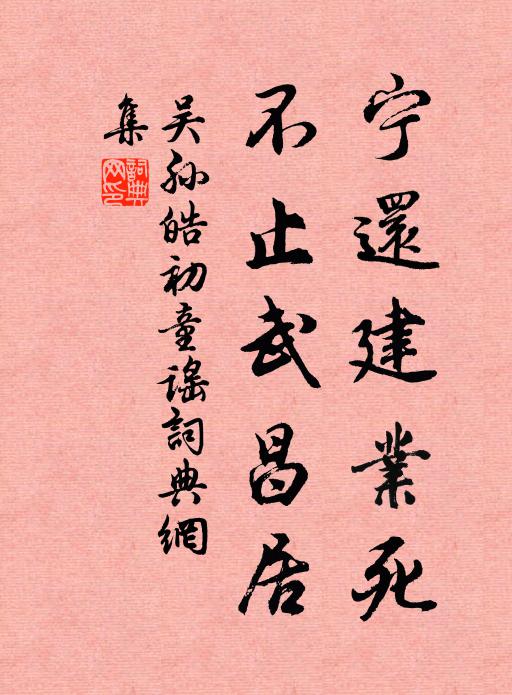 宁還建業死
不止武昌居
吴孙皓初童謠詞典網
集
詞典
网印